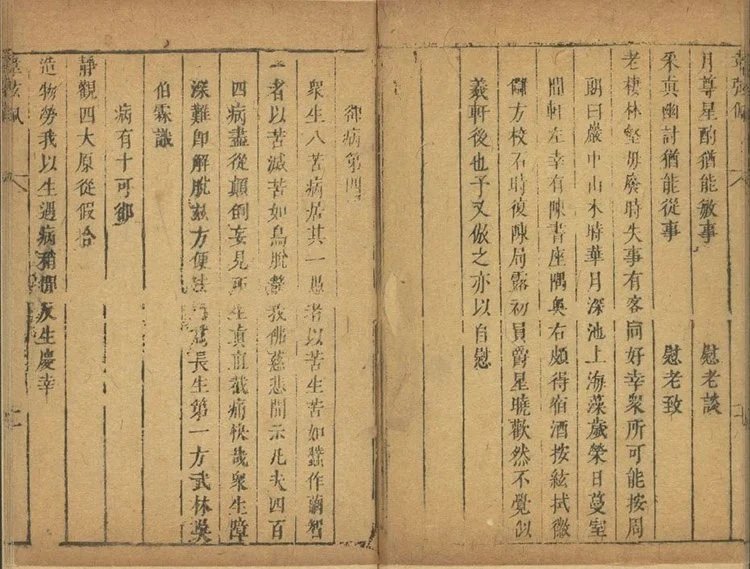 月尊星酌猶能敏事 慰老談
采真幽討猶能從事 慰老致
老棲林壑毋廢時失事有客同好幸衆所可能按周
朗曰巖中山木時華月深池上海藻歲榮日蔓室
間軒左幸有陳書座隅奧右頗得宿酒按絃拭徽
方校石時復陳局露初員爵星曉歡然不覺似
羲軒後也予又倣之亦以自慰
卻病第四
衆生八苦病居其一愚者以苦生苦如蠶作繭智
者以苦滅苦如鳥脫我佛慈悲開示凡夫四百
四病盡從顛倒妄見所生真直截痛快哉衆生障
深難即解脫茲方便法為長生第一方武林吳
伯霖識
病有十可卻
靜觀四大原從假合
造物勞我以生遇病稍反生慶幸